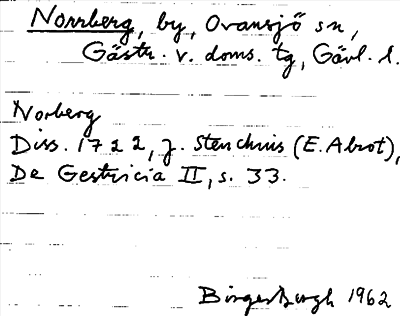 Norrberg, by, Ovansjö sn,
Gästr. v. doms. tg, Gävl. l.
Norberg
Diss. 1722, J. Stenchius (E. Abrot),
De Gestricia II, s. 33.
Birger Bergh 1962